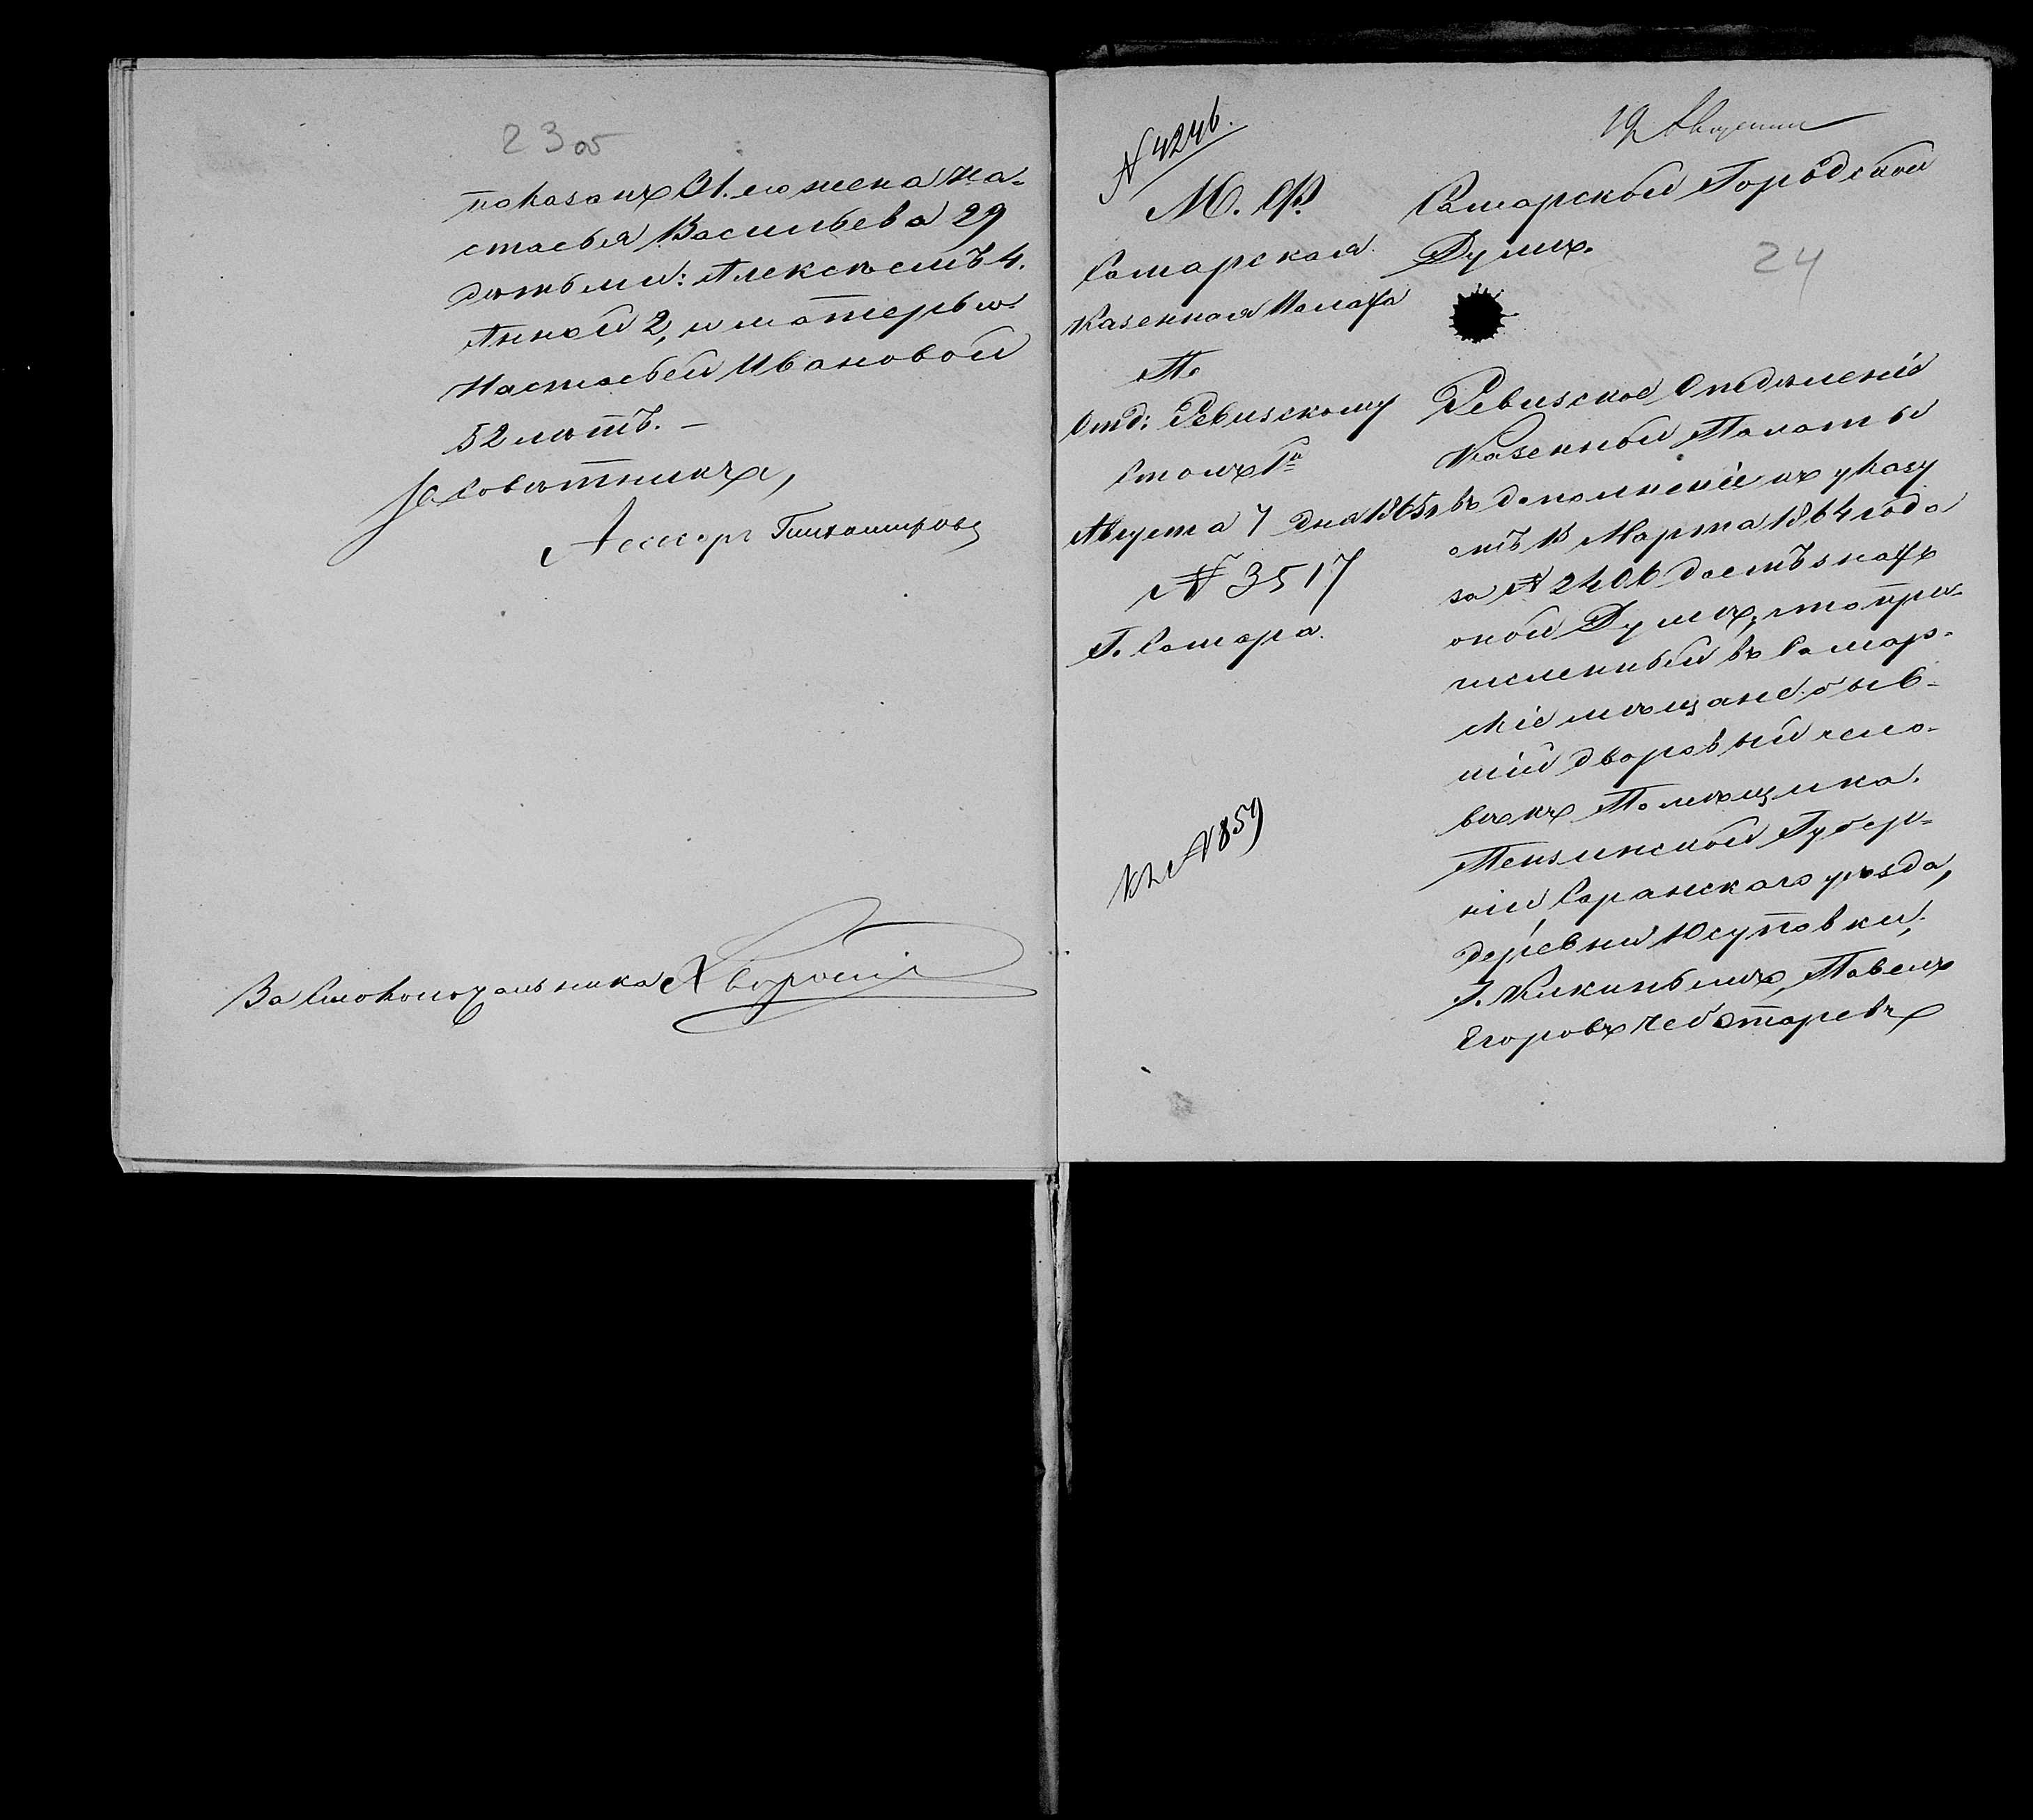 23 об
показанъ 31. его жена На-
стасья Васильева 29
дѣтьми: Алексѣемъ 4.
Анной 2, и матерью
Настасьей Ивановой
52 лѣтъ. —
За Совѣтника,
Ассесоръ Тихомировъ
За Столоначальника
№ 4246.
М. Ф.
Самарская
Казенная Палата
По
Отд: Ревизскому
Столъ 1й
Августа 7 дня 1865 г.
№ 3517
Г. Самара.
Къ № 859
19 Августа
Самарской Городской
Думѣ.
24
Ревизское Отдѣленіе
Казенной Палаты
въ дополненіе къ указу
отъ 13 Марта 1864 года
за № 2406 даетъ знать
оной Думѣ, что при-
численный въ Самар-
скіе мѣщане быв-
шій дворовый чело-
вѣкъ Помѣщика
Пензинской Губер-
ніи Саранскаго уѣзда,
деревни Юсуповки,
Г. Кикинымъ, Павелъ
Егоровъ Чеботаревъ